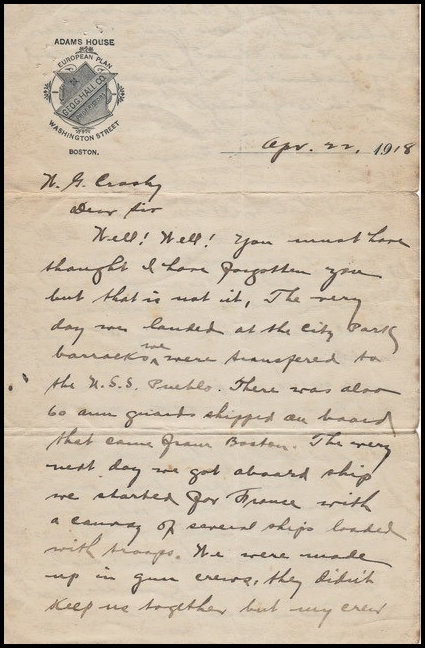 ADAMS HOUSE
EUROPEAN PLAN
GEO. G. HALL CO.
PROPRIETORS
WASHINGTON STREET
BOSTON.
Apr. 22, 1918
N. G. Crosby
Dear Sir
Well! Well! You must have
thought I have forgotten you
but that is not it, The very
day we landed at the City Park
barracks we were transfered to
the U.S.S. Pueblo. There was also
60 arm guards shipped on board
that came from Boston. The very
next day we got aboard ship
we started for France with
a convoy of several ships loaded
with troops. We were made
up in gun crews, they didn't
keep us together but my crew